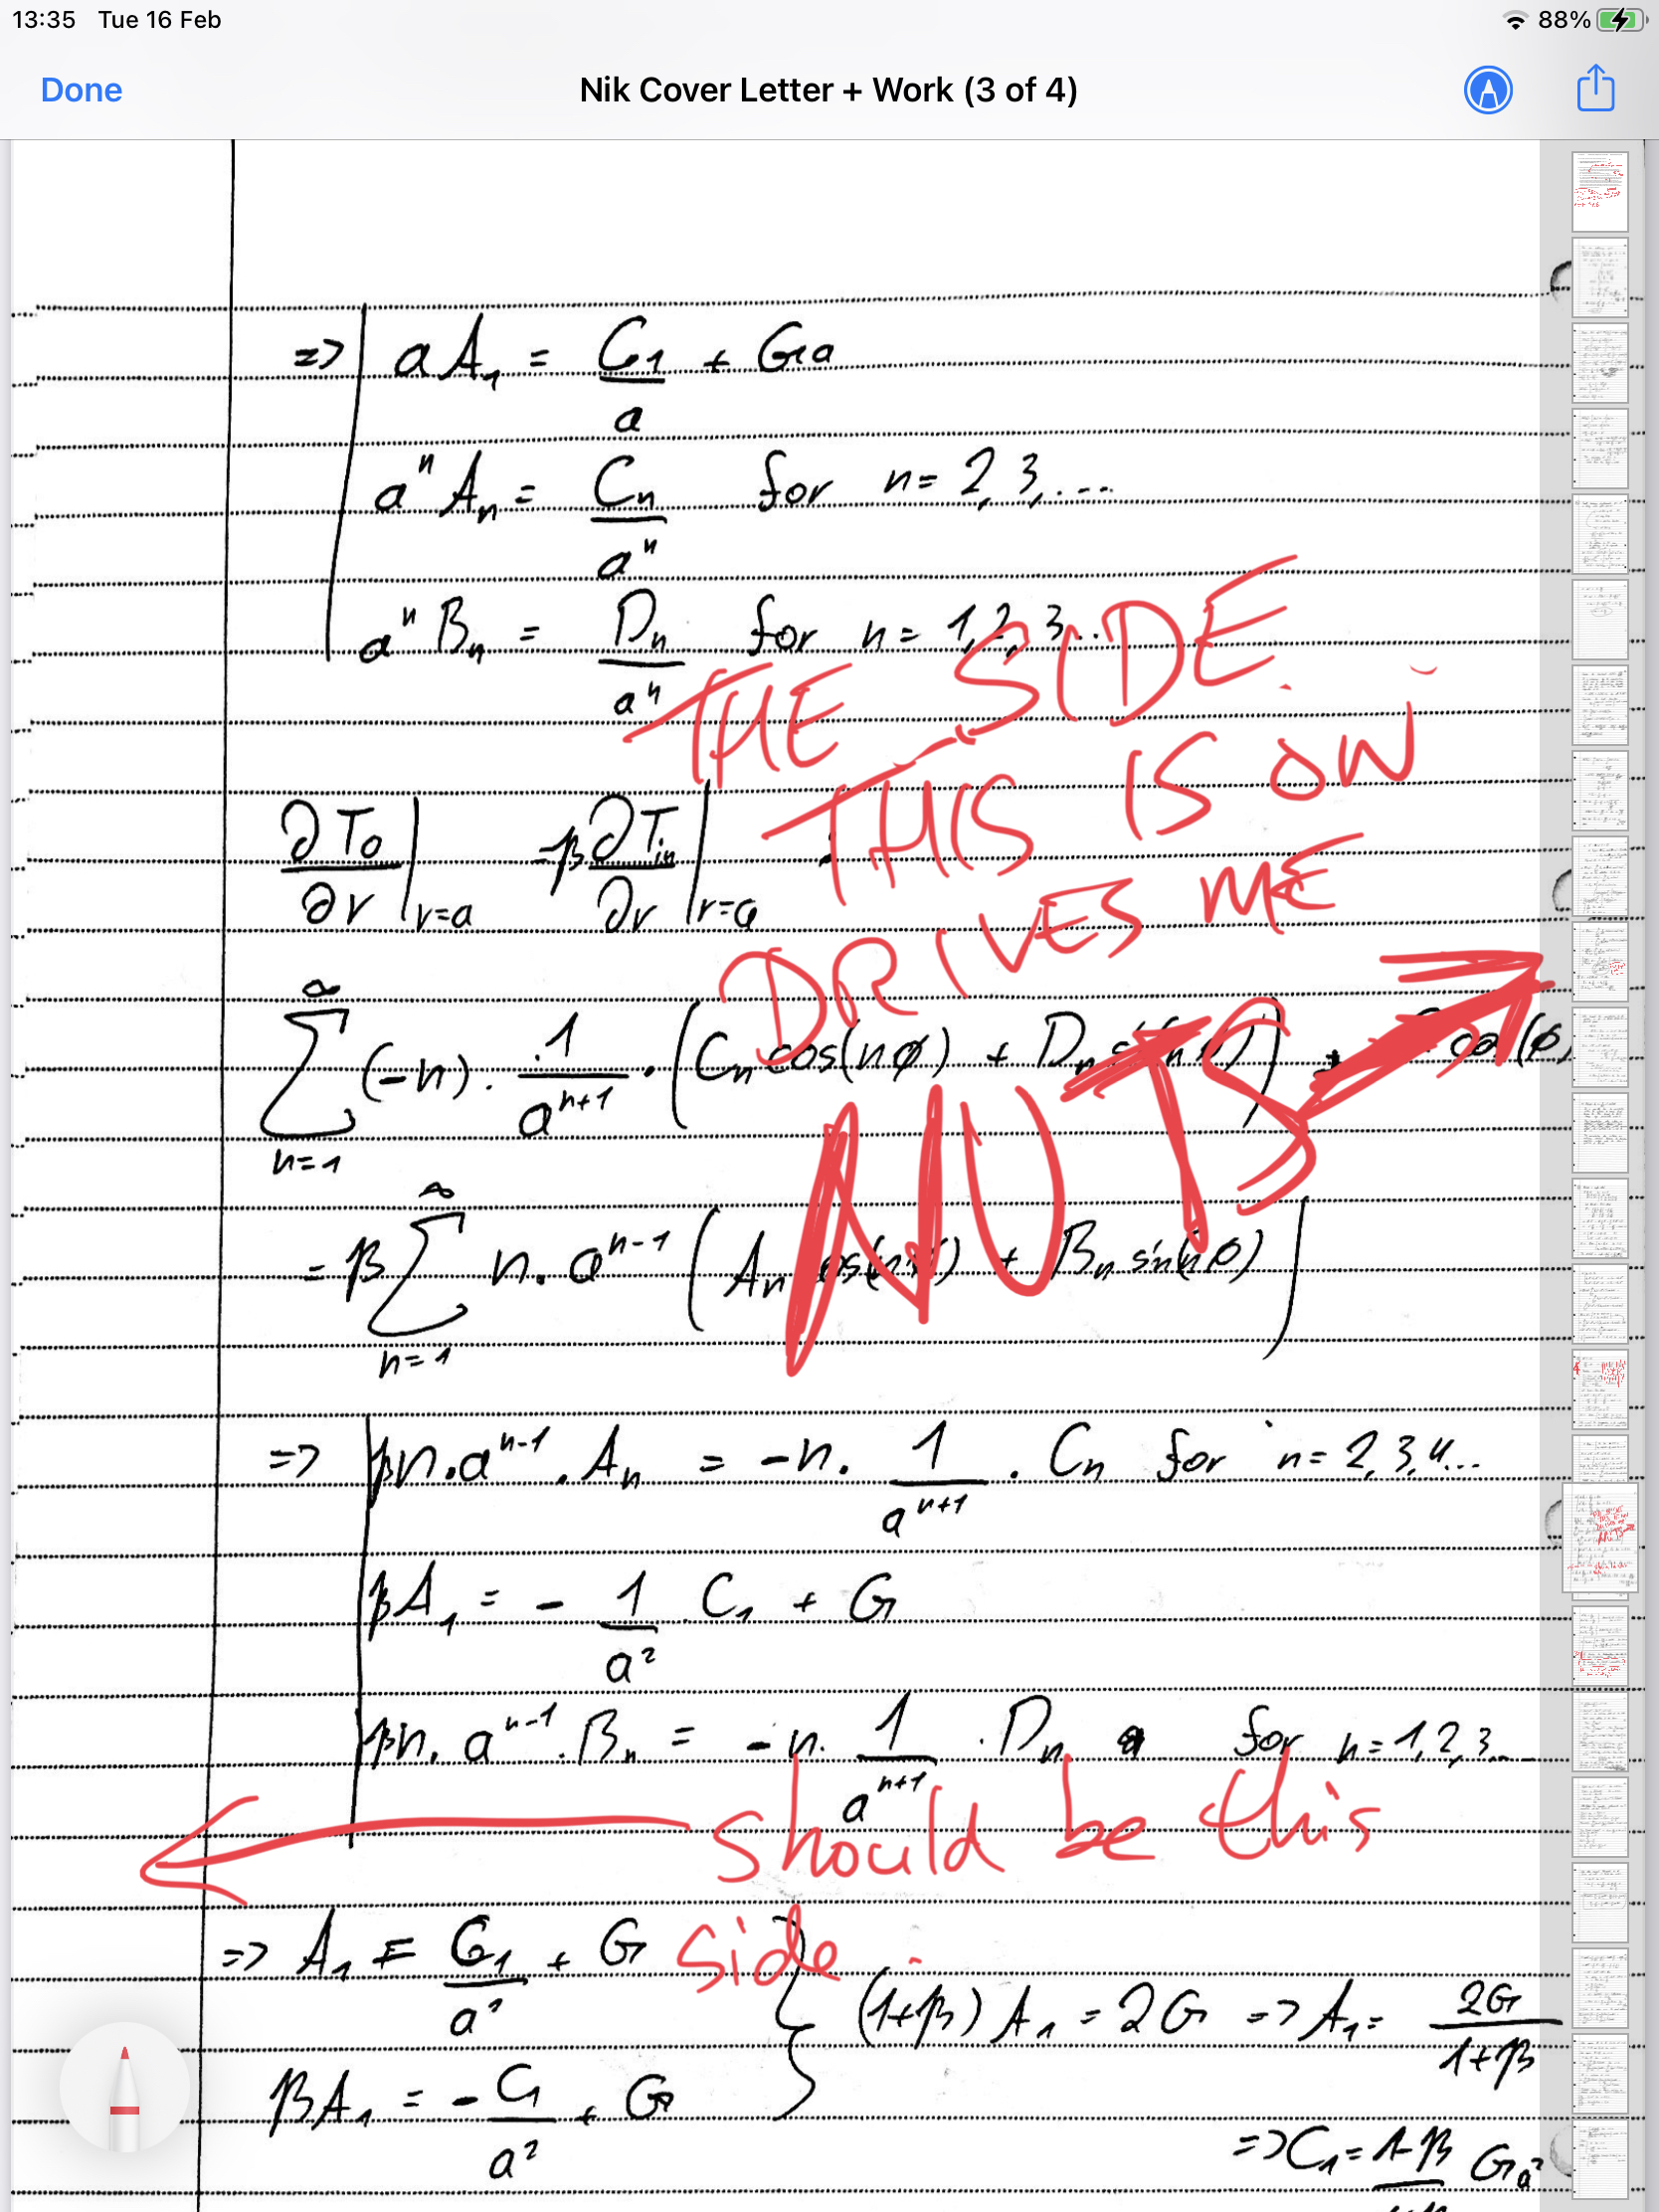 13:35 Tue 16 Feb 88%
Done Nik Cover Letter + Work (3 of 4)
=> aA₁ = C₁/a + Ga
aⁿAₙ = Cₙ/aⁿ for n = 2,3,...
aⁿBₙ = Dₙ/aⁿ for n = 1,2,3..
THE SIDE
THIS IS ON
DRIVES ME
NUTS
∂T₀/∂r |r=a = β ∂Tᵢₙ/∂r |r=a
∞Σn=1 (-n) · 1/aⁿ⁺¹ · (Cₙ cos(nφ) + Dₙ sin(nφ)) + cos(φ)
= β ∞Σn=1 n · aⁿ⁻¹ (Aₙ cos(nφ) + Bₙ sin(nφ))
=> βn·aⁿ⁻¹·Aₙ = -n · 1/aⁿ⁺¹ · Cₙ for n = 2,3,4...
βA₁ = - 1/a² C₁ + G
βn·aⁿ⁻¹·Bₙ = -n · 1/aⁿ⁺¹ · Dₙ for n = 1,2,3...
should be this
side
=> A₁ = C₁/a² + G
βA₁ = - C₁/a² + G
} (1+β)A₁ = 2G => A₁ = 2G/1+β
=> C₁ = 1-β Ga²